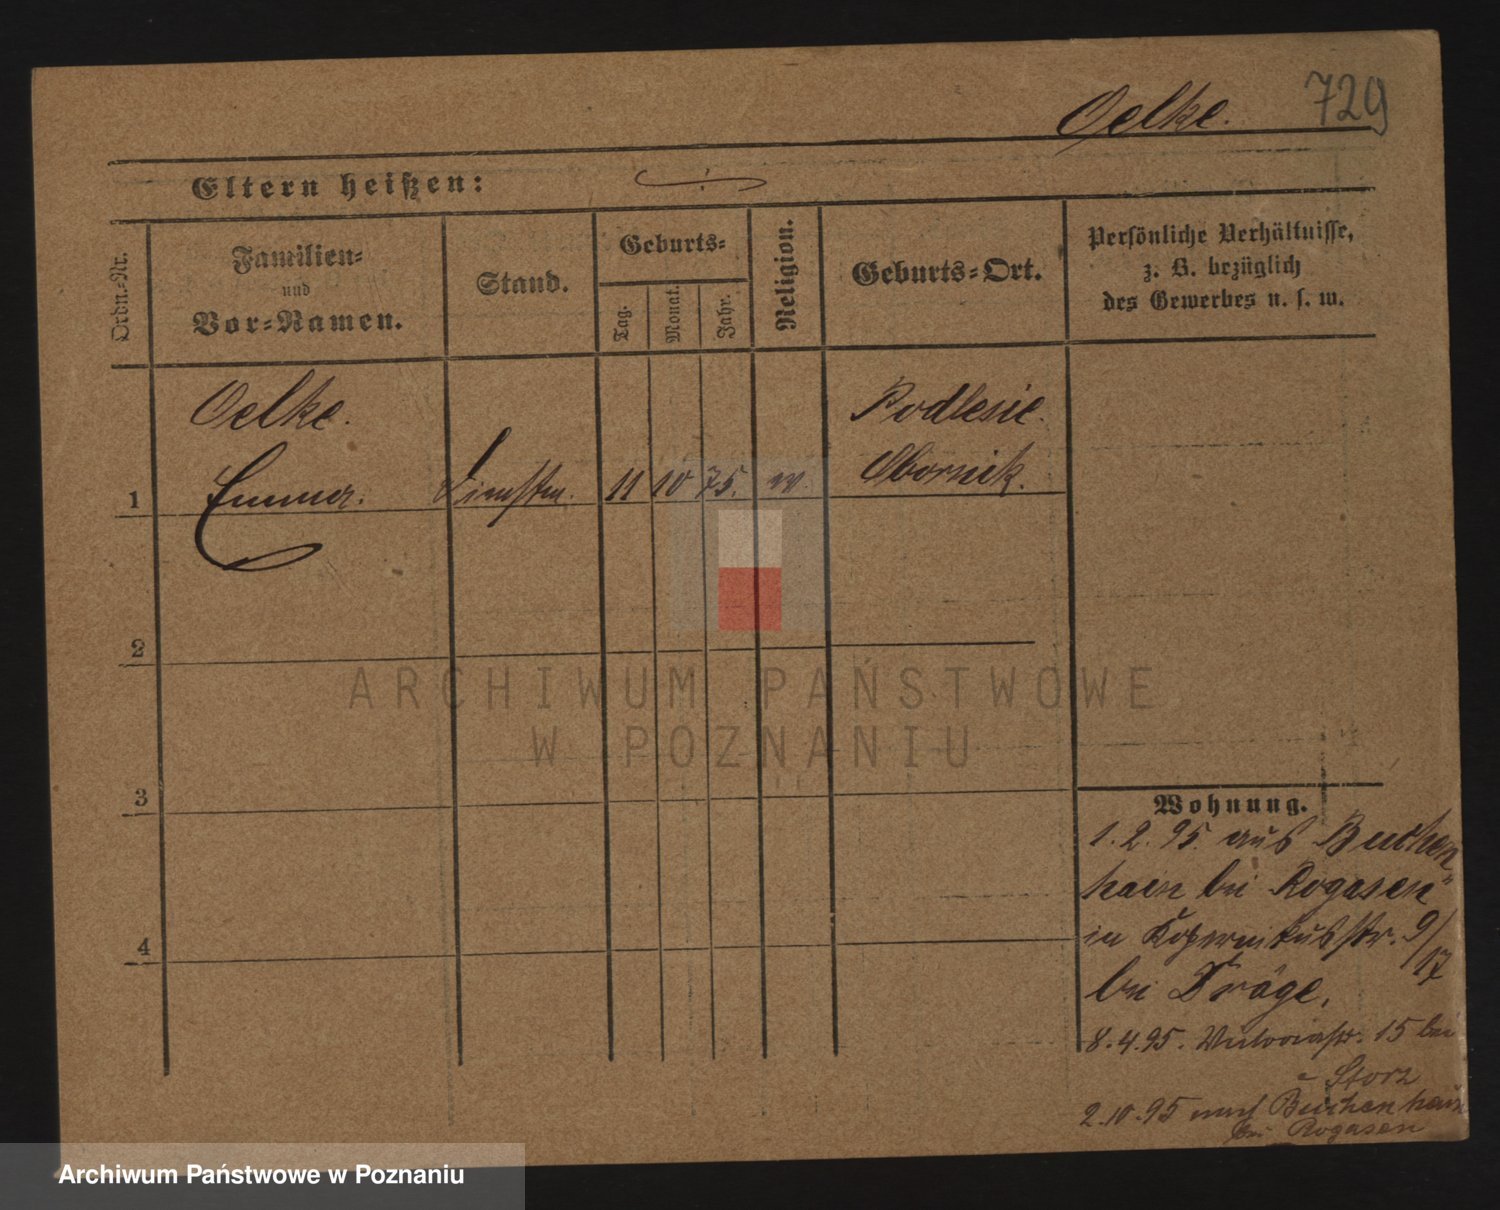 729
Oelke.
Eltern heißen:
Ordn.-Nr.
Familien-
und
Vor-Namen.
Stand.
Geburts-
Tag.
Monat.
Jahr.
Religion.
Geburts-Ort.
Persönliche Verhältnisse,
z. B. bezüglich
des Gewerbes u. s. w.
Oelke.
Podlesie
1
Emma.
11
10
75.
Obornik.
2
3
4
ARCHIWUM PAŃSTWOWE
W POZNANIU
Wohnung.
1. 2. 95. aus Buchen-
hain bei Rogasen
in Kopernikusstr. 9/
17
bei Dräge.
8. 4. 95. Victoriastr. 15 bei
Storz
2. 10. 95 nach Buchenhain
bei Rogasen
Archiwum Państwowe w Poznaniu